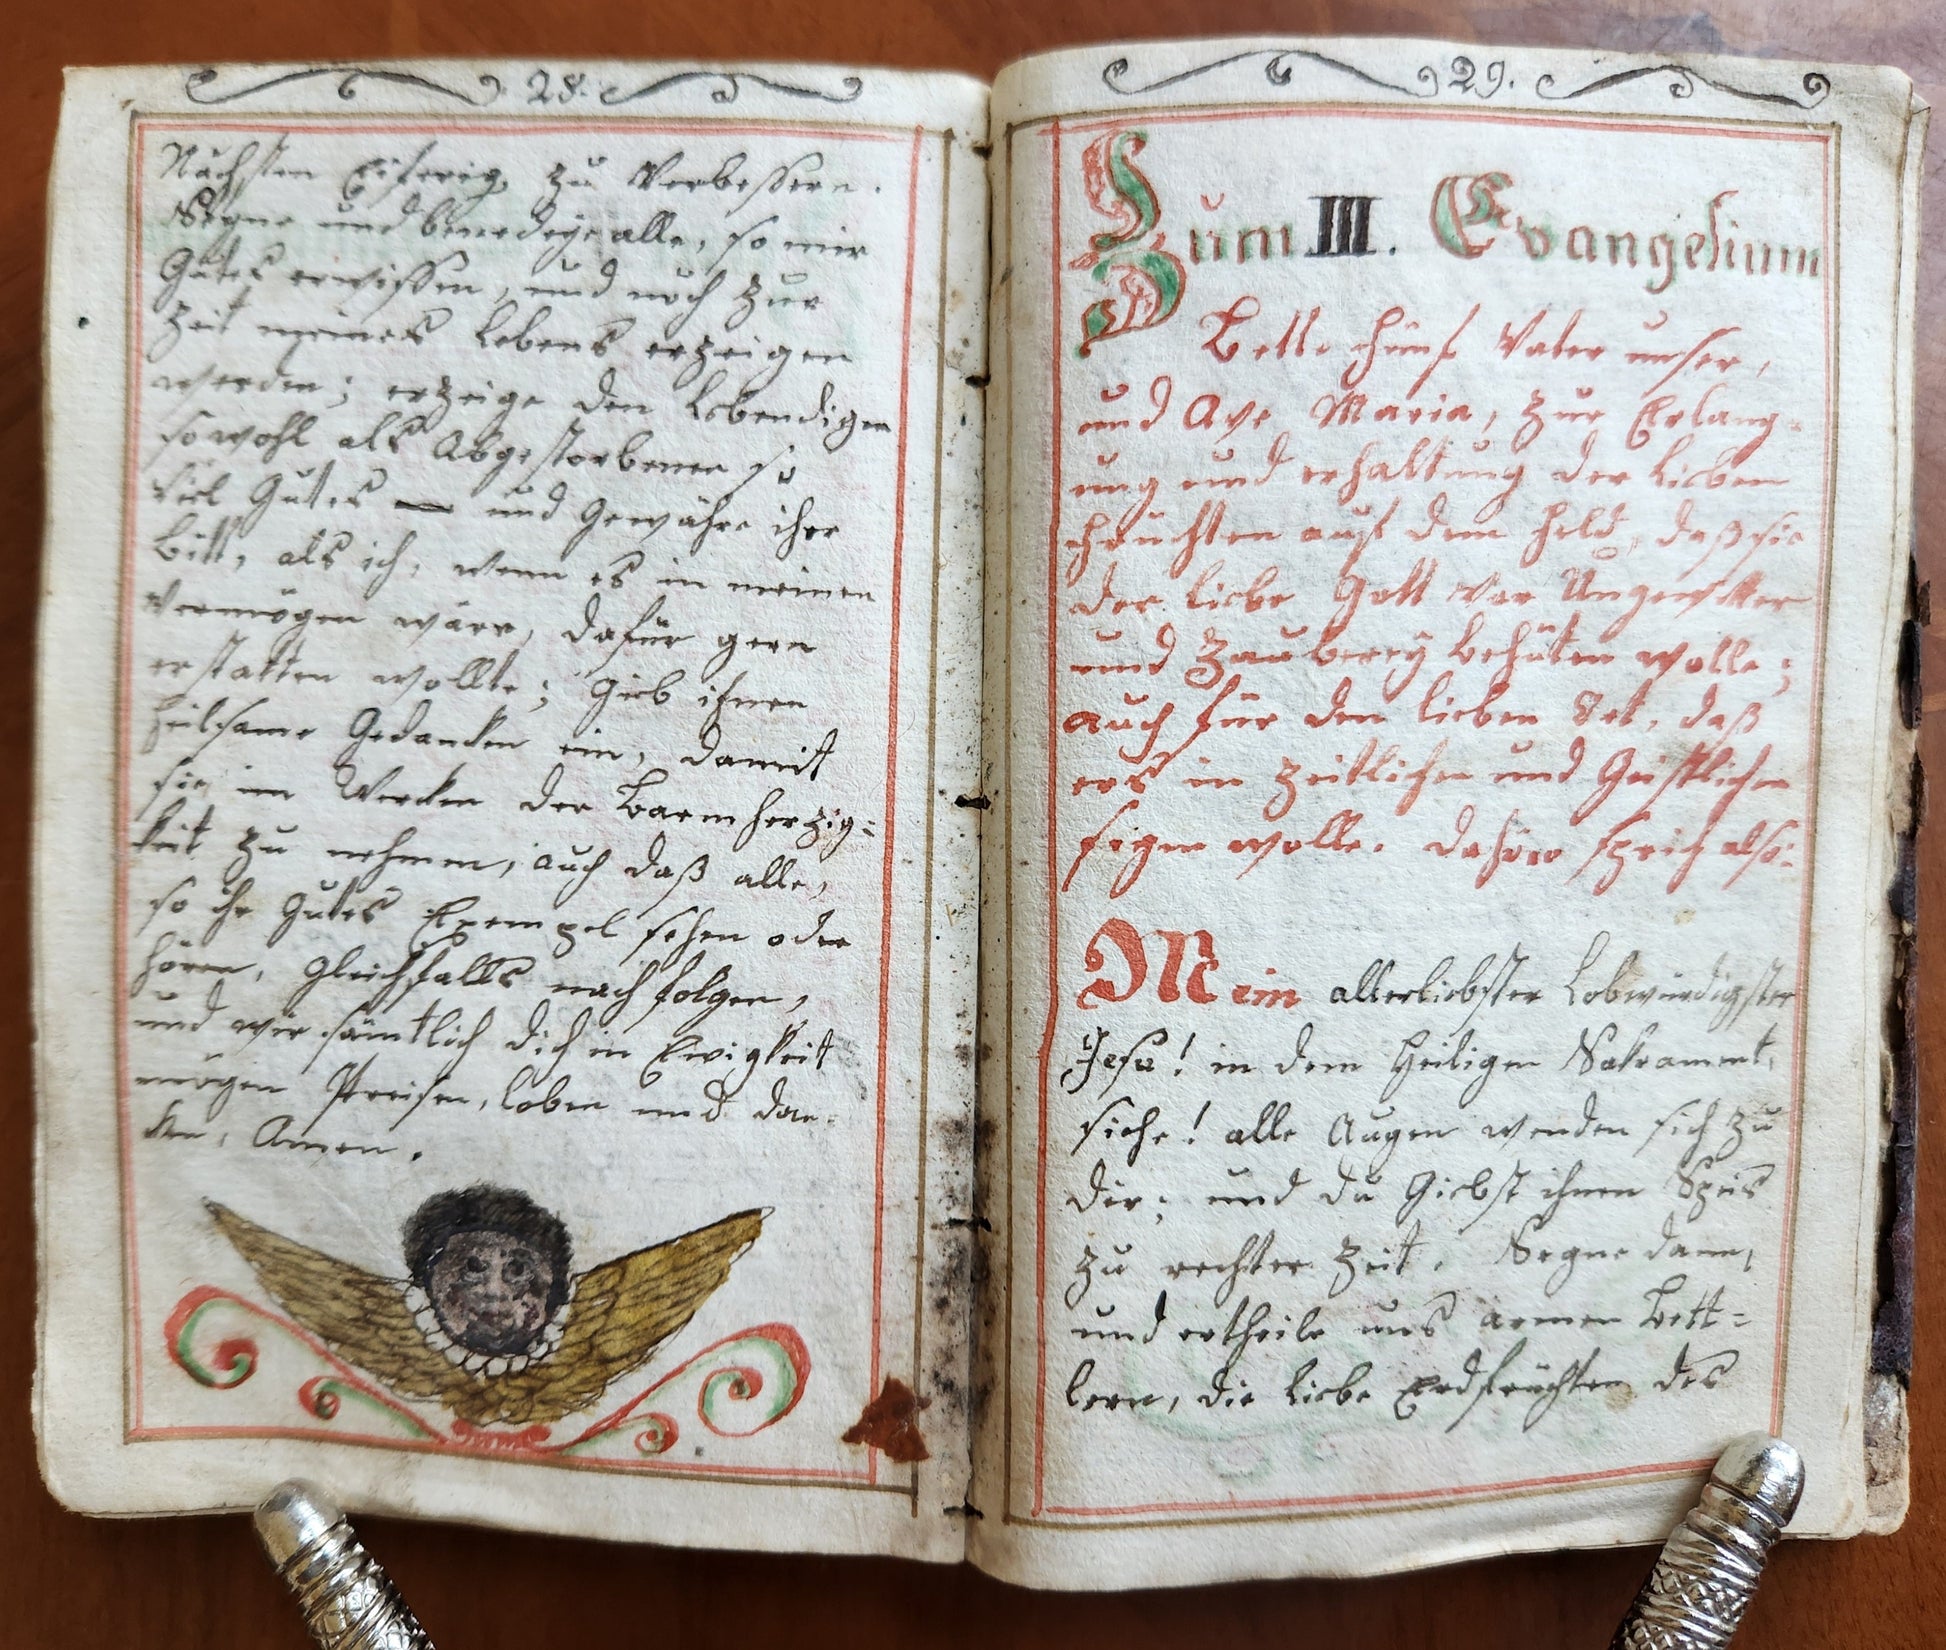 28.
Nächsten Eiferig zu Verbeßern.
Segne und benedeye alle, so mir
Gutes erwissen, und noch zur
Zeit meines Lebens erzeigen
werden; erzeige den Lebendigen
sowohl als Abgestorbenen so
viel Gutes und Gewähre ihre
Bitt, als ich, wenn es in meinen
Vermögen wäre, dafür gern
erstatten wollte; Gieb ihnen
heilsame Gedanken ein, damit
sie im Werken der Barmherzig=
keit zu nehmen, auch daß alle,
so ihr Gutes Exempel sehen oder
hören, gleichfalls nachfolgen,
und wir sämtlich dich in Ewigkeit
mögen Preisen, loben und dan=
ken, Amen.
29.
Zum III. Evangelium
Bette fünf Vater unser,
und Ave Maria, zur Erlang=
ung und erhaltung der Lieben
früchten auf dem feld, daß sie
der liebe Gott vor Ungewitter
und Zauberey behüten wolle;
auch für den lieben daß
ers in Zeitlichen und Geistlichen
segen wolle. Dafüro sprich also:
Mein allerliebster Lobwürdigster
Jesu! in dem Heiligen Sakrament,
siehe! alle Augen wenden sich zu
dir; und du Giebst ihnen Speis
zu rechter Zeit. Segne dann,
und ertheile uns armen Bett=
lern, die liebe Erdfrüchten des